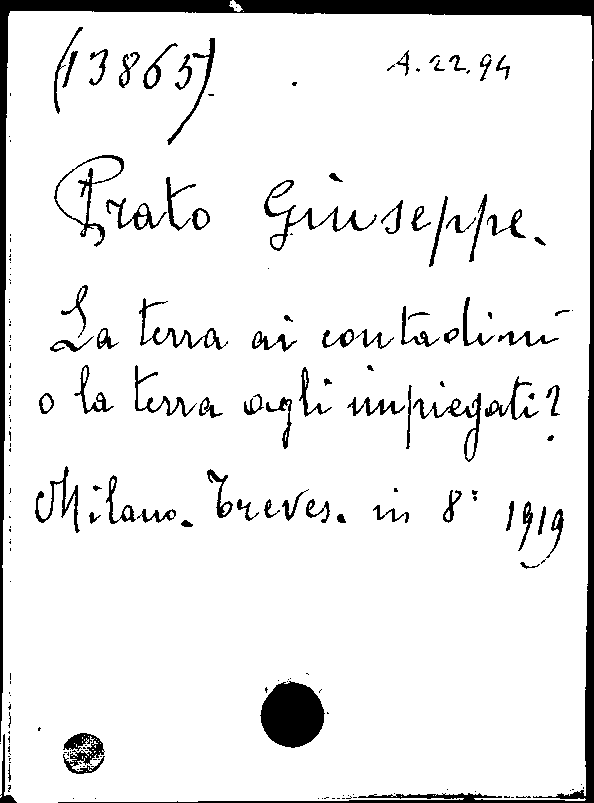 (13865). A.22.94
Prato Giuseppe.
La terra ai contadini
o la terra agli impiegati?
Milano. Treves. in 8° 1919